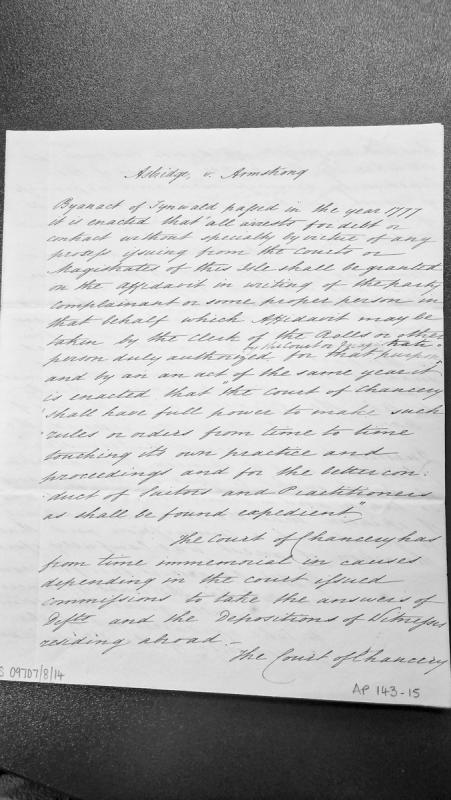 Asbridge, v. Armstrong
By an act of Tynwald passed in the year 1777
it is enacted that "all arrests for debt or
contract without specialty by virtue of any
process issuing from the Courts or
Magistrates of this Isle shall be granted
on the Affidavit in writing of the party
complainant or some proper person in
that behalf which Affidavit may be
taken by the Clerk of the Rolls or other
person duly authorized for that purpose"
and by an an act of the same year it
is enacted that "the Court of Chancery
"shall have full power to make such
"rules or orders from time to time
touching its own practice and
proceedings and for the better con:
:duct of Suitors and Practitioners
as shall be found expedient"
The Court of Chancery has
from time immemorial in causes
depending in the court issued
commissions to take the answers of
Defts and the Depositions of Witnesses
residing abroad. –
The Court of Chancery
S 09707/8/14
AP 143-15